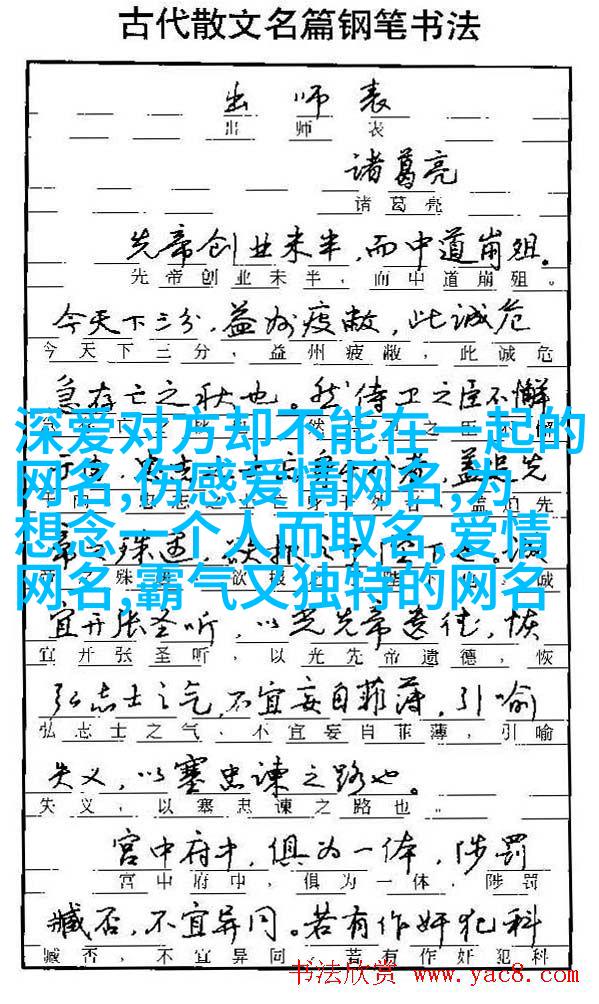 古代散文名篇钢笔书法
出师表
出师表
诸葛亮
诸葛亮
先帝创业未半,而中道崩殂。
先帝创业未半,而中道崩殂。
今天下三分,益州疲敝,此诚危
今天下三分,益州疲敝,此诚危
急存亡之秋也。然侍卫之臣不懈
深爱对方却不能在一起的
网名,伤感爱情网名,为
想念一个人而取名,爱情
网名,霸气又独特的网名
宜开张圣听,以光先帝遗德,恢
宜开张圣听,以光先帝遗德,恢
弘志士之气,不宜妄自菲薄,引喻
弘志士之气,不宜妄自菲薄,引喻
失义,以塞忠谏之路也。
失义,以塞忠谏之路也。
宫中府中,俱为一体,陟罚
宫中府中,俱为一体,陟罚
臧否,不宜异同。若有作奸犯科
臧否,不宜异同。若有作奸犯科
书法欣赏 www.yac8.com